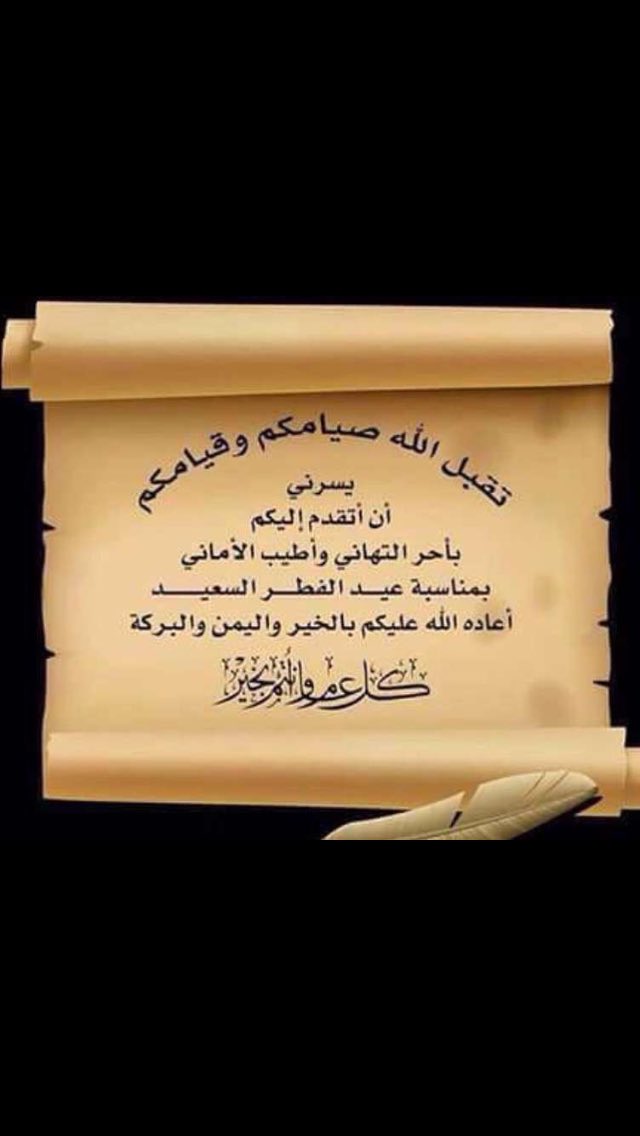 تقبل الله صيامكم وقيامكم
يسرني
أن أتقدم إليكم
بأحر التهاني وأطيب الأماني
بمناسبة عيـد الفطـر السعيـــد
أعاده الله عليكم بالخير واليمن والبركة
كل عام وأنتم بخير